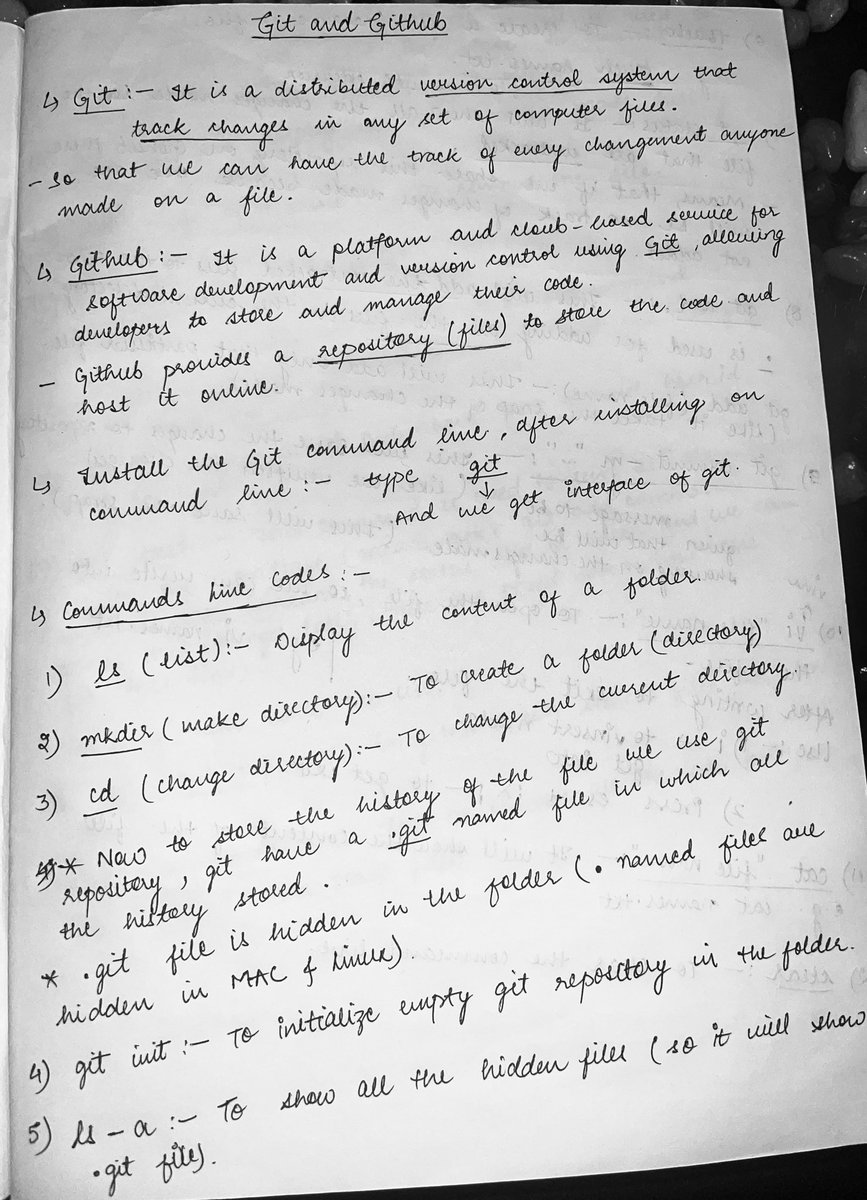 Git and Github
↳ Git :- It is a distributed version control system that
track changes in any set of computer files.
- So that we can have the track of every changement anyone
made on a file.
↳ Github :- It is a platform and cloub-based service for
software development and version control using Git, allowing
developers to store and manage their code.
- Github provides a repository (files) to store the code and
host it online.
↳ Install the Git command line, after installing on
command line :- type git
↓
And we get interface of git.
↳ Commands Line Codes :-
1) ls (list) :- Display the content of a folder.
2) mkdir (make directory) :- To create a folder (directory)
3) cd (change directory) :- To change the current directory.
* Now to store the history of the file we use, git
repository, git have a .git named file in which all
the history stored.
* .git file is hidden in the folder (. named files are
hidden in MAC & Linux).
4) git init :- To initialize empty git repository in the folder.
5) ls -a :- To show all the hidden files (so it will show
.git file).